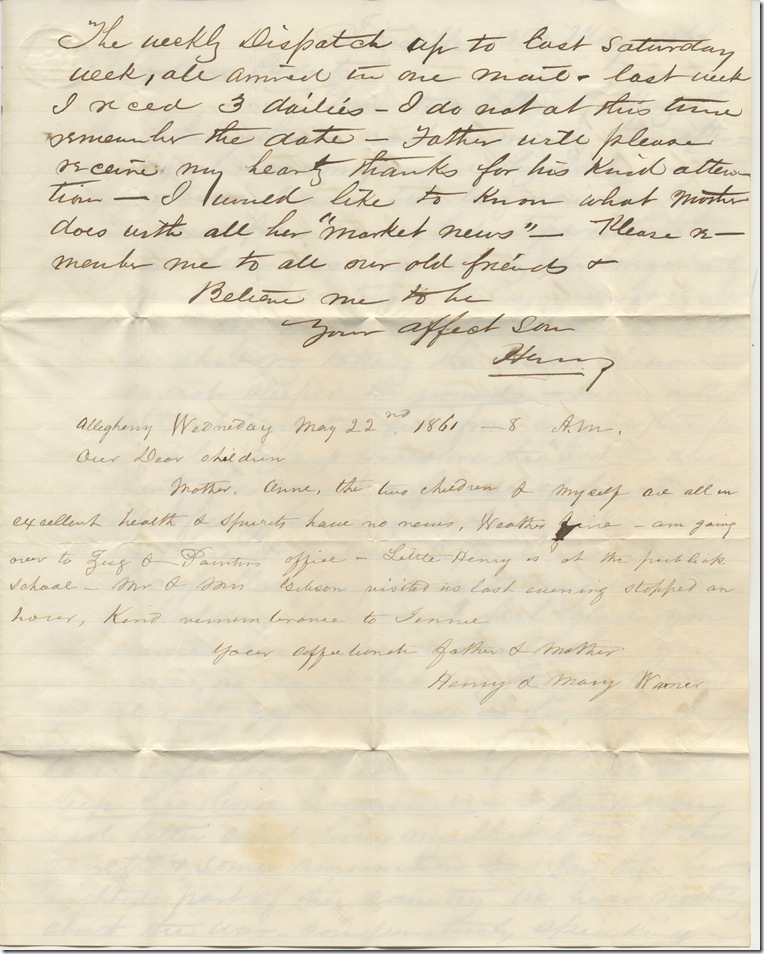 The weekly Dispatch up to last Saturday
week, all arrived in one mail & last week
I reced 3 dailies – I do not at this time
remember the date – Father will please
receive my hearty thanks for his kind atten
tion — I would like to know what Mother
does with all her "market news" — Please re–
member me to all our old friends &
Believe me to be
Your affect son
Henry
Allegheny Wedneday May 22nd, 1861 — 8 A.M.
Our Dear children
Mother, Anne, the two children & myself are all in
excellent health & spirits have no news, Weather fine – am going
over to Zug & Painters office – Little Henry is at the publick
school – Mr & Mrs Gibson visited us last evening stopped an
hour, Kind rememberance to Jennie
Your affectionate father & Mother
Henry & Mary Warner